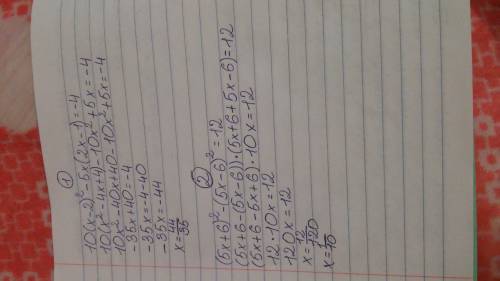 ①
10(x-2)²-5x(2x-1)=-4
10(x²-4x+4)-10x²+5x=-4
10x²-40x+40-10x²+5x=-4
-35x+40=-4
-35x=-4-40
-35x=-44
x=44/35
②
(5x+6)²-(5x-6)²=12
(5x+6-(5x-6))·(5x+6+5x-6)=12
(5x+6-5x+6)·10x=12
12·10x=12
120x=12
x=12/120
x=1/10